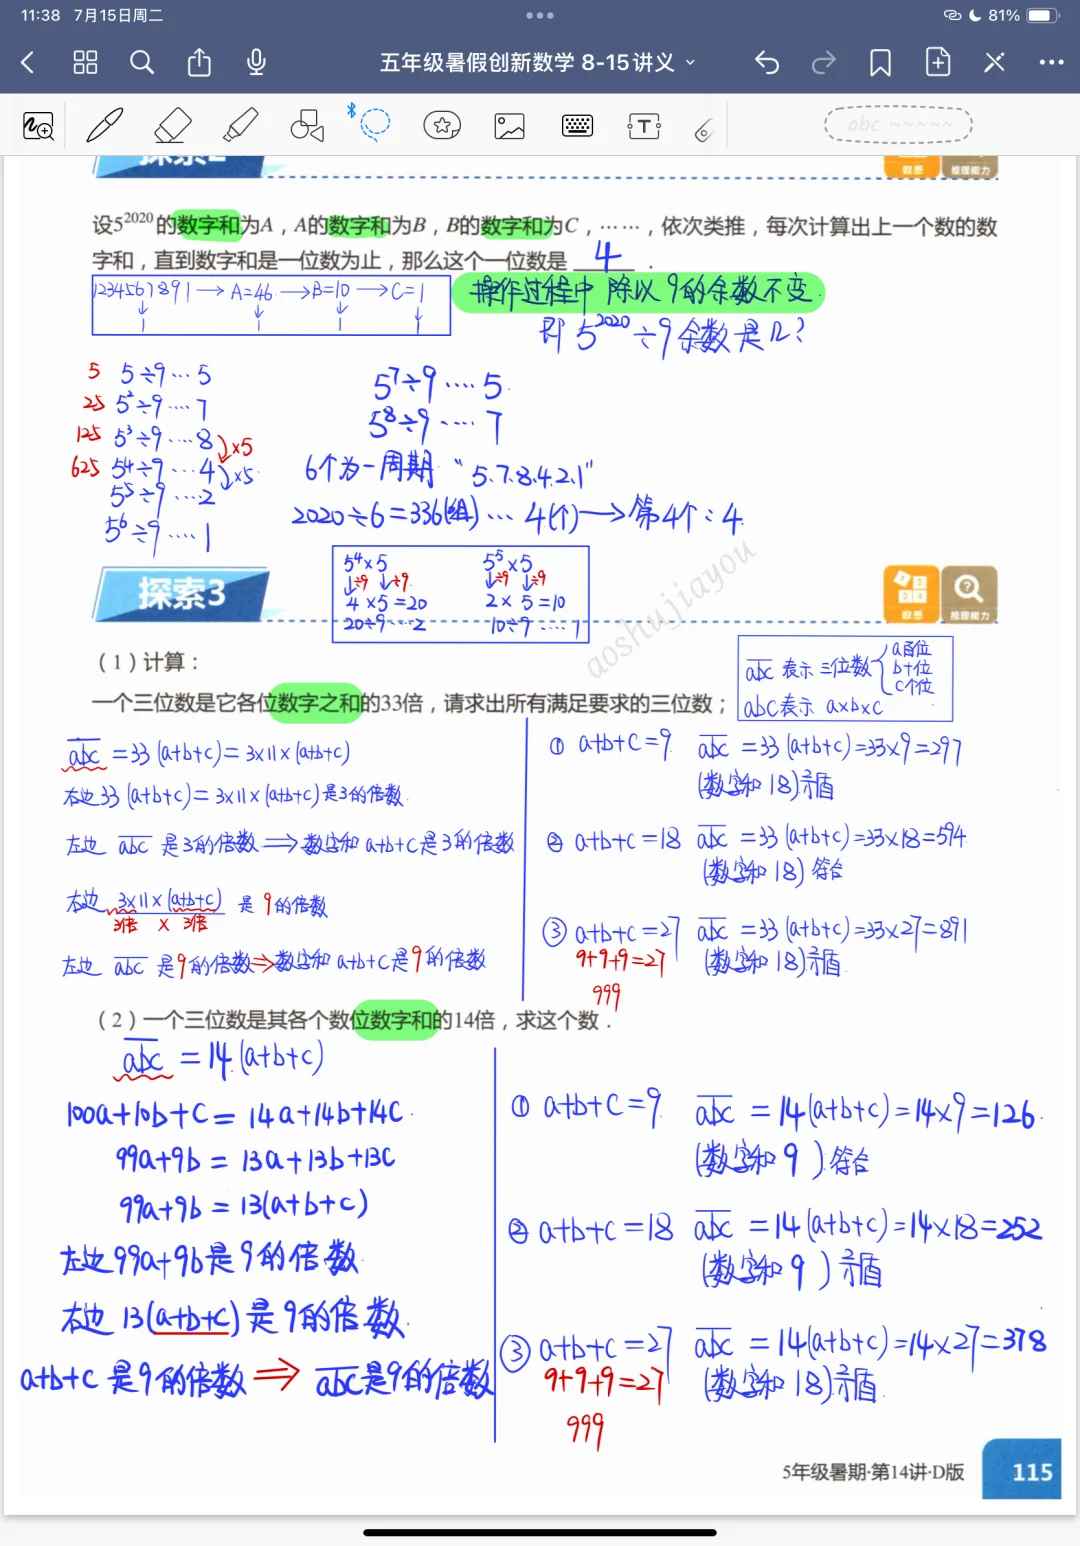 11:38 7月15日周二
81%
五年级暑假创新数学 8-15讲义
abc ~~~~~
探索2
数感
推理能力
设5²⁰²⁰的数字和为A，A的数字和为B，B的数字和为C，……，依次类推，每次计算出上一个数的数
字和，直到数字和是一位数为止，那么这个一位数是 4 ．
1234567891→A=46→B=10→C=1
↓ ↓ ↓ ↓
1 1 1 1
操作过程中 除以9的余数不变.
即 5²⁰²⁰÷9余数是几?
5 5÷9…5
25 5²÷9…7
125 5³÷9…8
625 5⁴÷9…4
5⁵÷9…2
5⁶÷9…1
×5
×5
5⁷÷9…5
5⁸÷9…7
6个为一周期 “5.7.8.4.2.1”
2020÷6=336(组)…4(个)→第4个:4
探索3
5⁴×5
↓÷9 ↓÷9
4×5=20
20÷9…2
5⁵×5
↓÷9 ↓÷9
2×5=10
10÷9…1
aoshujiayou
数感
推理能力
（1）计算：
a̅b̅c̅ 表示三位数 a百位 b十位 c个位
abc表示 a×b×c
一个三位数是它各位数字之和的33倍，请求出所有满足要求的三位数；
a̅b̅c̅ =33(a+b+c)=3×11×(a+b+c)
右边33(a+b+c)=3×11×(a+b+c)是3的倍数.
左边 a̅b̅c̅ 是3的倍数⟹数字和a+b+c是3的倍数
右边 3×11×(a+b+c) 是9的倍数
3倍 × 3倍
左边 a̅b̅c̅ 是9的倍数⟹数字和a+b+c是9的倍数
① a+b+c=9 a̅b̅c̅ =33(a+b+c)=33×9=297
(数字和18)矛盾
② a+b+c=18 a̅b̅c̅ =33(a+b+c)=33×18=594
(数字和18)符合
③ a+b+c=27 a̅b̅c̅ =33(a+b+c)=33×27=891
9+9+9=27 (数字和18)矛盾
999
（2）一个三位数是其各个数位数字和的14倍，求这个数．
a̅b̅c̅ =14(a+b+c)
100a+10b+c=14a+14b+14c.
99a+9b=13a+13b+13c
99a+9b=13(a+b+c)
左边99a+9b是9的倍数
右边13(a+b+c)是9的倍数
a+b+c是9的倍数⟹a̅b̅c̅是9的倍数
① a+b+c=9 a̅b̅c̅ =14(a+b+c)=14×9=126.
(数字和9)符合
② a+b+c=18 a̅b̅c̅ =14(a+b+c)=14×18=252
(数字和9)矛盾
③ a+b+c=27 a̅b̅c̅ =14(a+b+c)=14×27=378
9+9+9=27 (数字和18)矛盾
999
5年级暑期·第14讲·D版
115